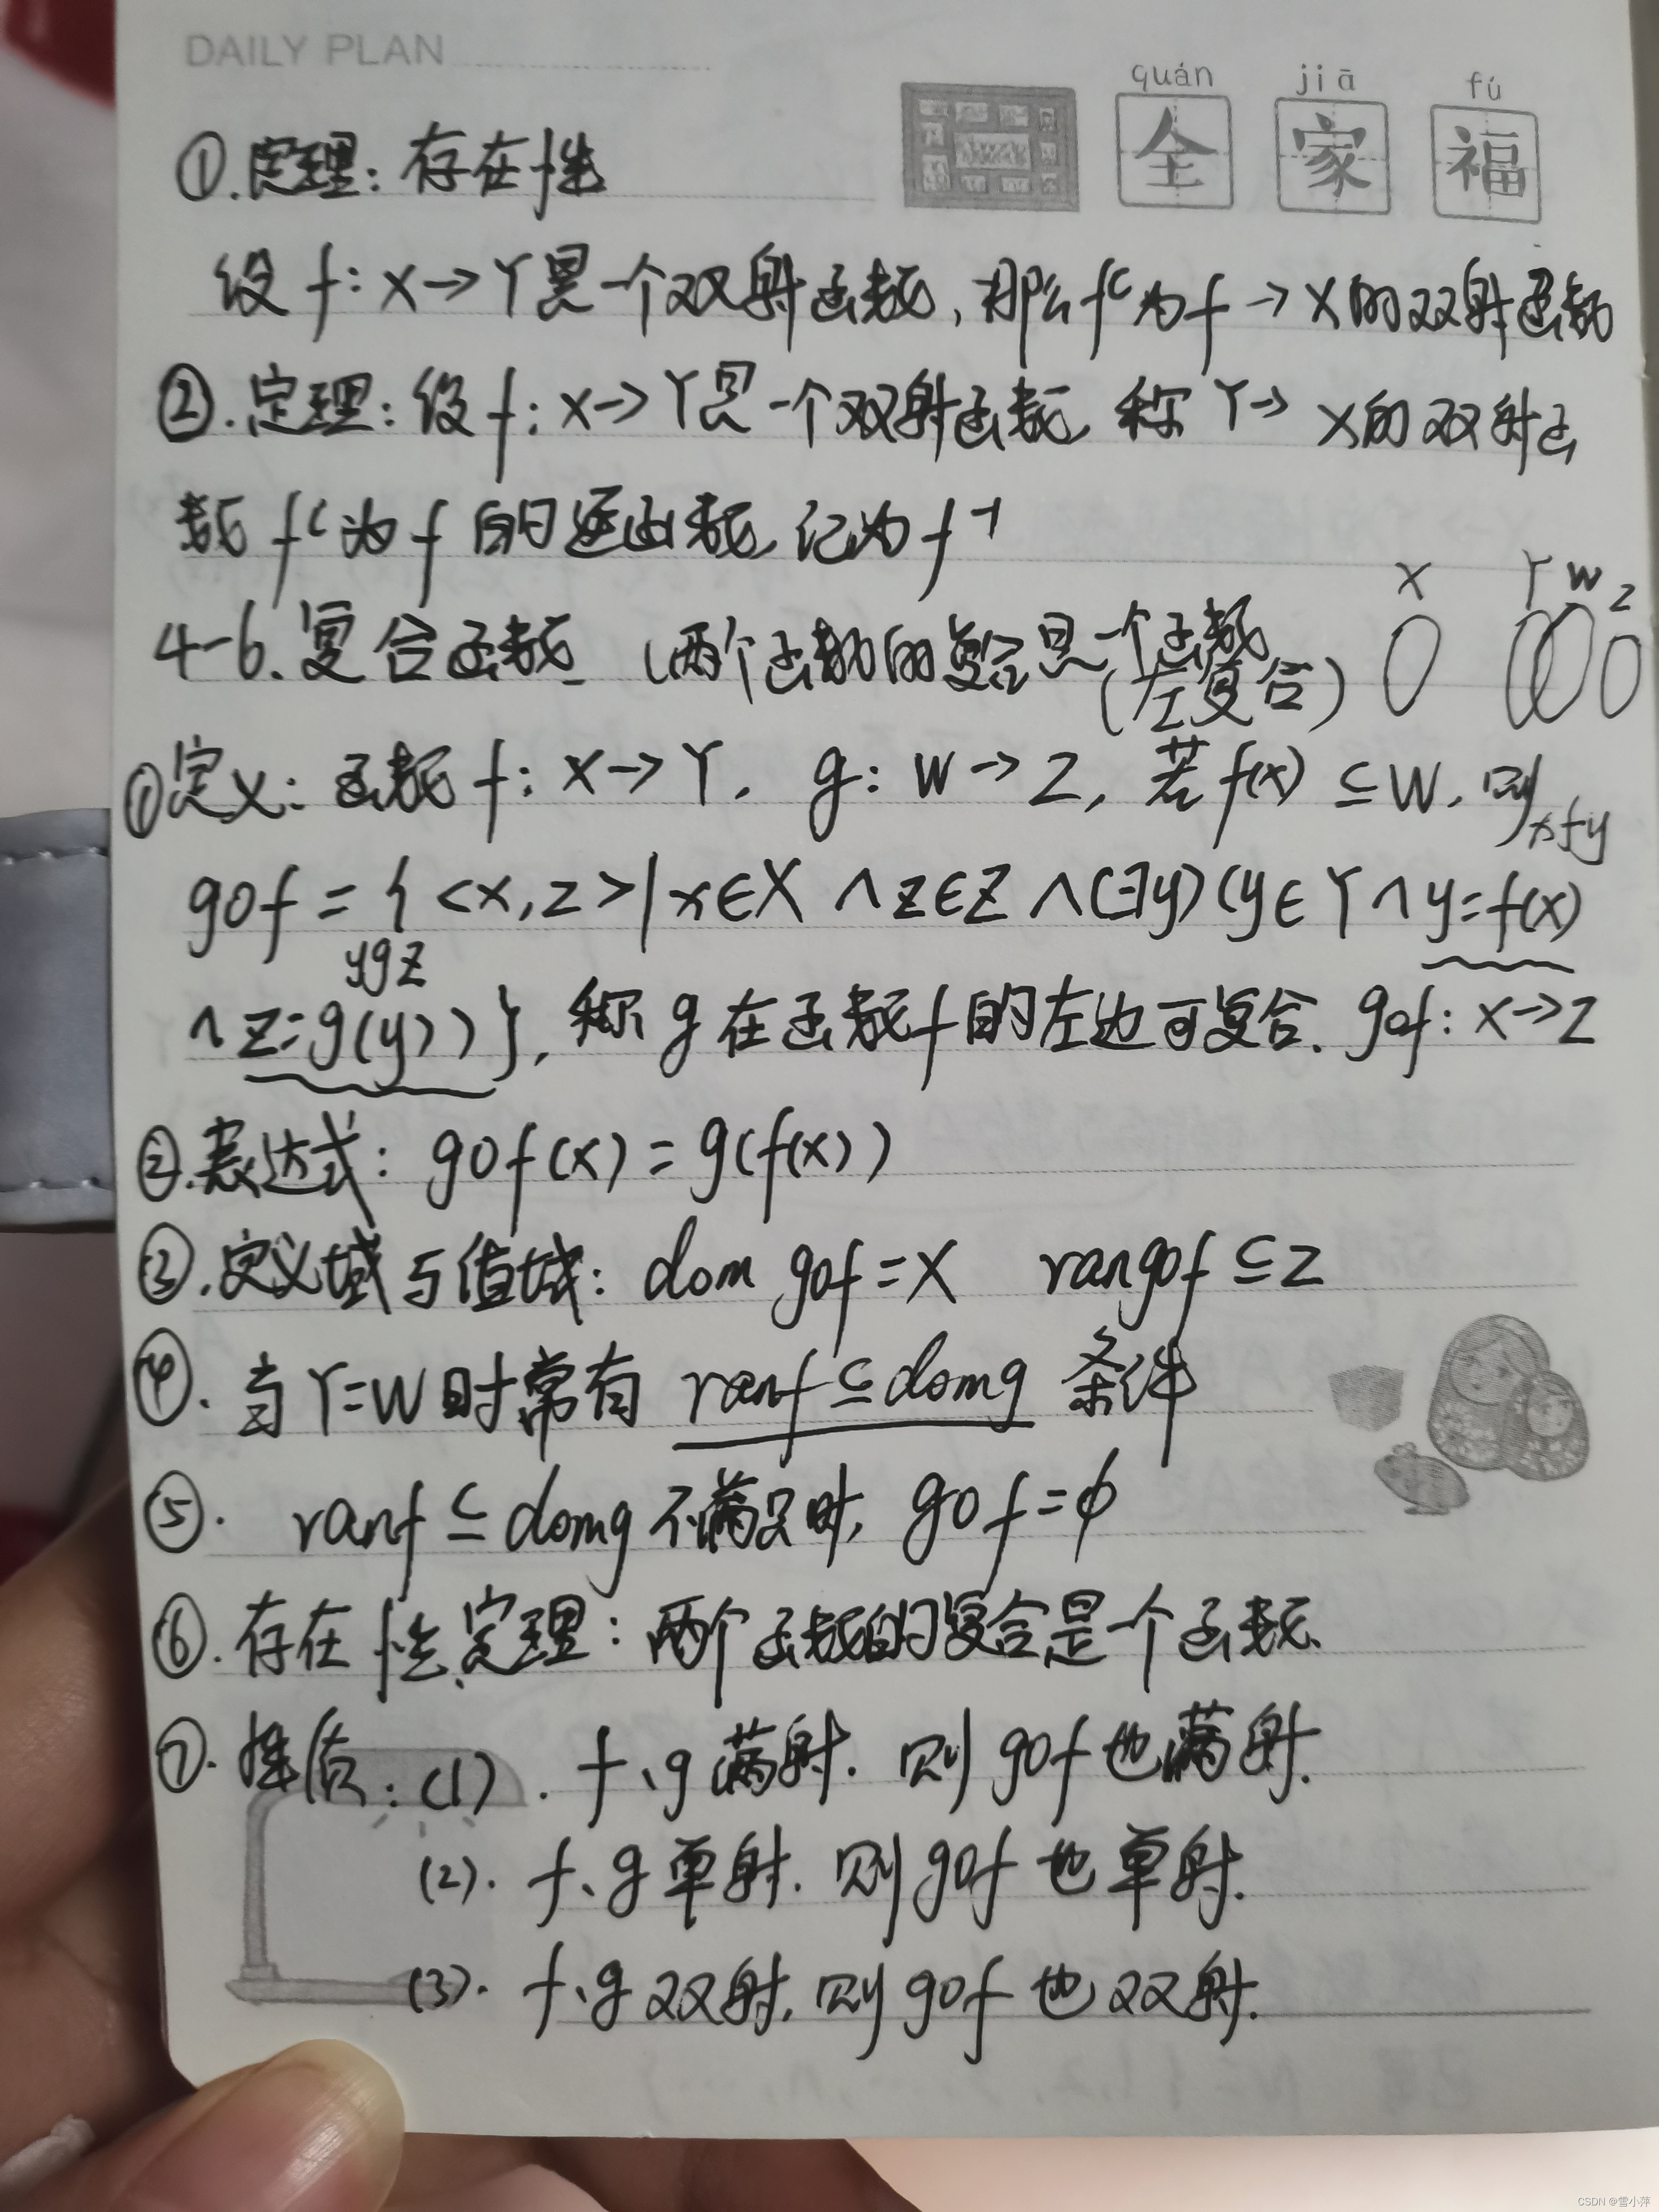 DAILY PLAN
quán jiā fú
全 家 福
①.定理：存在性
设f：X→Y是一个双射函数，那么fᶜ为f→X的双射函数
②.定理：设f：X→Y是一个双射函数，称Y→X的双射函
数fᶜ为f的逆函数，记为f⁻¹
X Y W Z
4-6.复合函数（两个函数的复合是一个函数
（左复合）
①定义：函数f：X→Y，g：W→Z，若f(x)⊆W，则
xfy
gof={<x,z>|x∈X∧z∈Z∧(∃y)(y∈Y∧y=f(x)
ygz
∧z=g(y))}，称g在函数f的左边可复合.gof：X→Z
②.表达式：gof(x)=g(f(x))
③.定义域与值域：dom gof=X rangof⊆Z
④.当Y=W时常有ranf⊆domg条件
⑤.ranf⊆domg不满足时，gof=ϕ
⑥.存在性定理：两个函数的复合是一个函数
⑦.性质：(1).f、g满射.则gof也满射.
(2).f、g单射.则gof也单射.
(3).f、g双射.则gof也双射.
CSDN @雪小萍